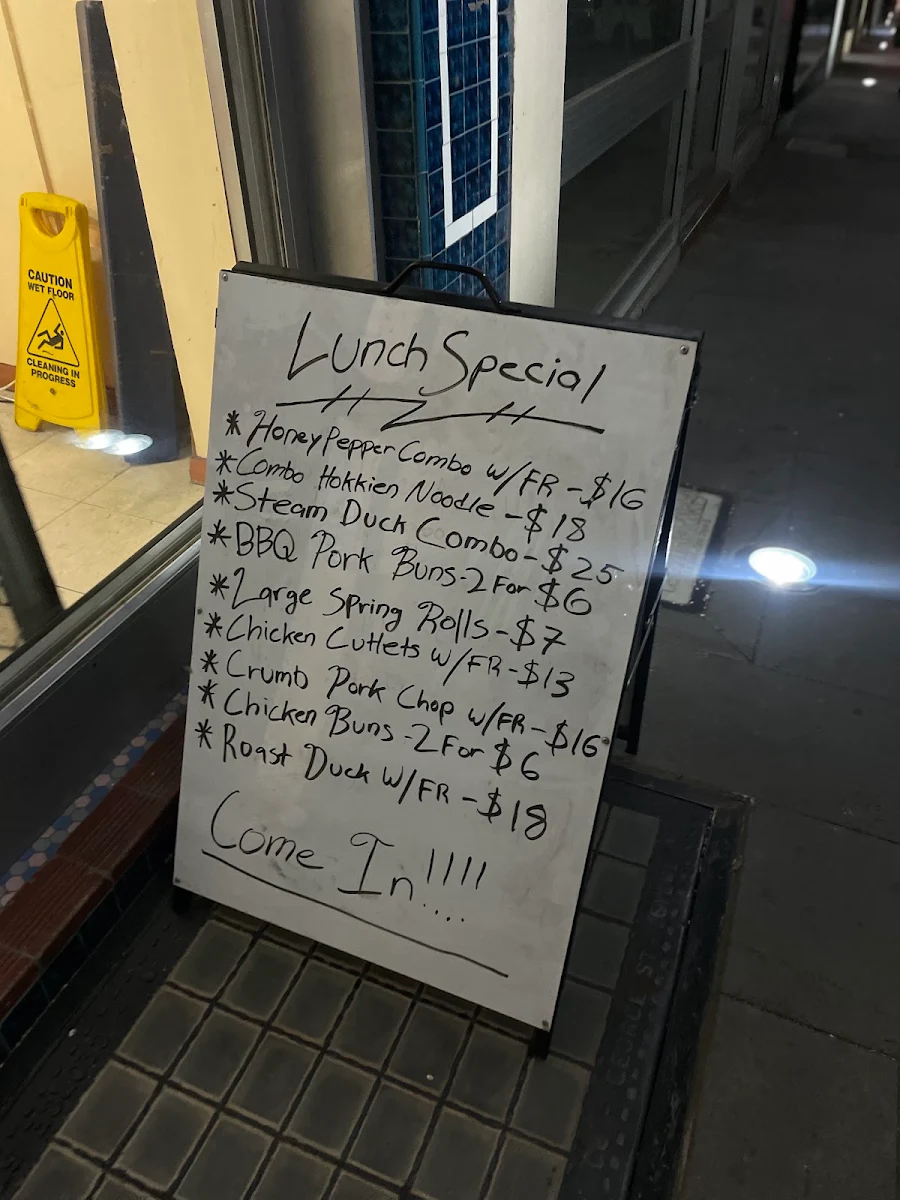 CAUTION
WET FLOOR
CLEANING IN
PROGRESS
Lunch Special
* Honey Pepper Combo w/FR - $16
* Combo Hokkien Noodle - $18
* Steam Duck Combo - $25
* BBQ Pork Buns - 2 For $6
* Large Spring Rolls - $7
* Chicken Cutlets w/FR - $13
* Crumb Pork Chop w/FR - $16
* Chicken Buns - 2 For $6
* Roast Duck w/FR - $18
Come In!!!!
GEORGE ST